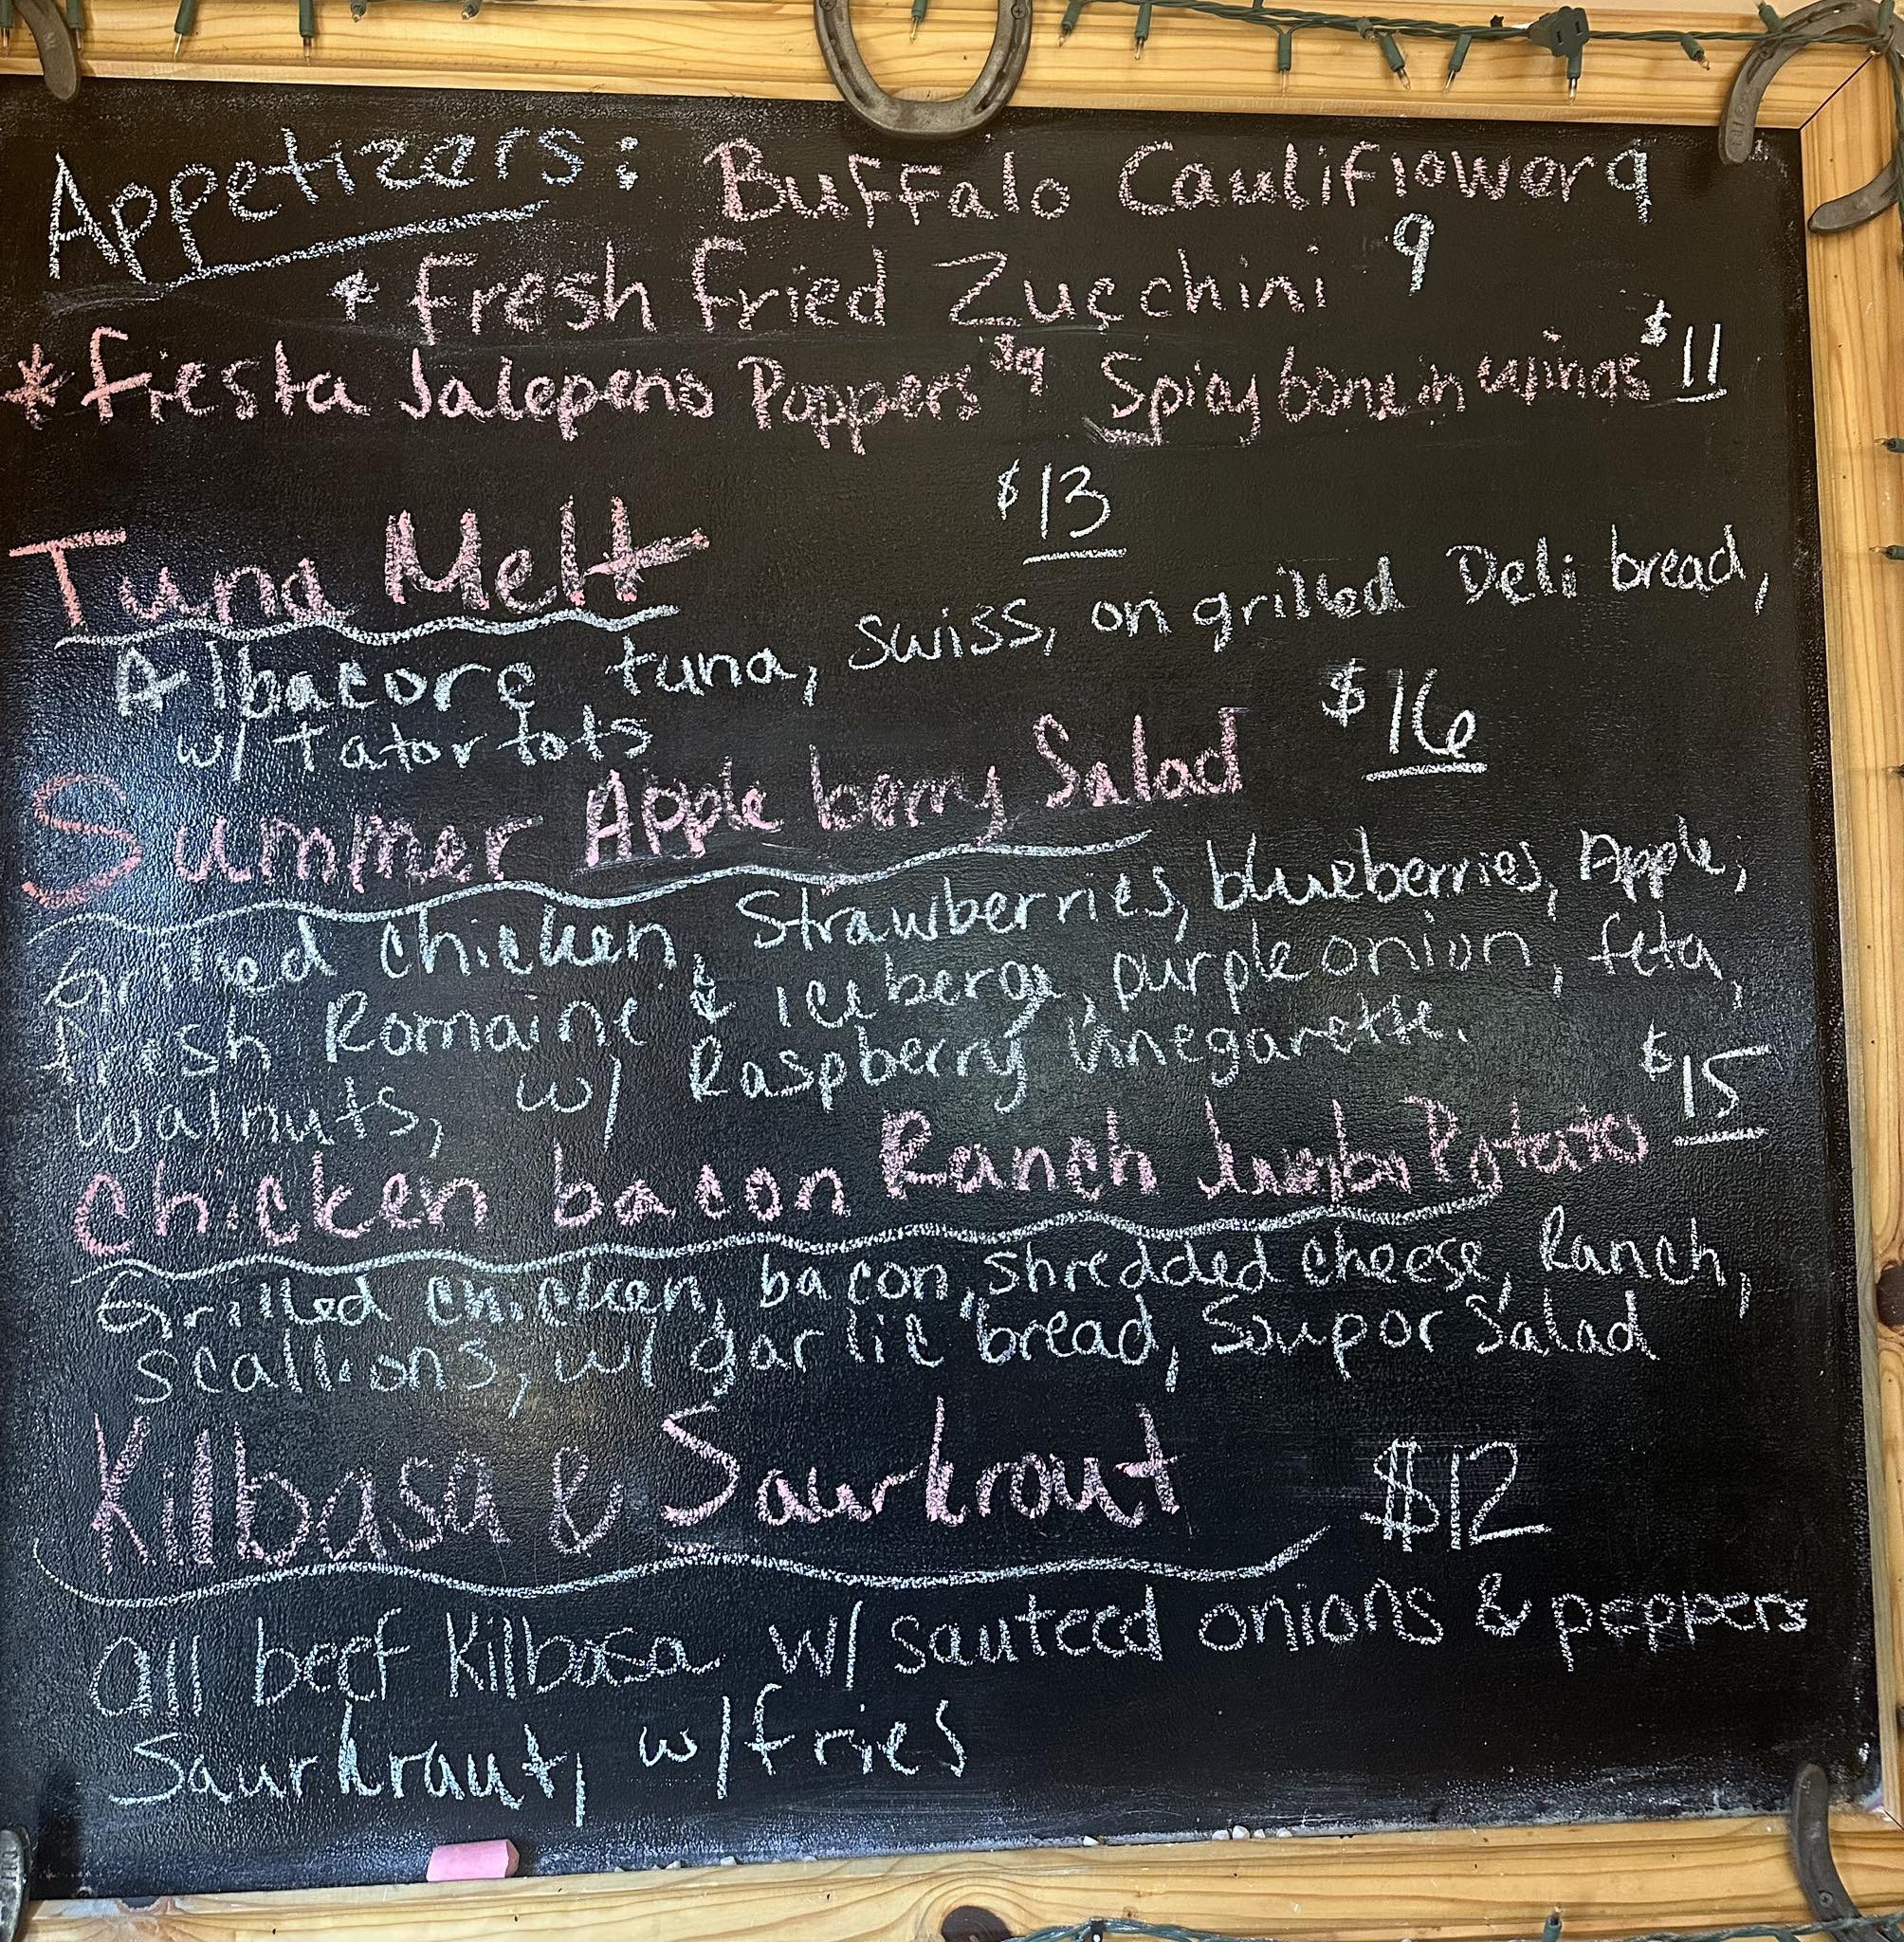 Appetizers: Buffalo Cauliflower 9
* Fresh Fried Zucchini 9
* Fiesta Jalepeno Poppers $9 Spicy bone in wings $11
Tuna Melt $13
Albacore tuna, Swiss, on grilled Deli bread,
w/ Tator tots
Summer Apple berry Salad $16
Grilled chicken, Strawberries, blueberries, Apple,
fresh Romaine & Iceberge, purple onion, feta,
walnuts, w/ Raspberry Vinegarette.
Chicken bacon Ranch Jumbo Potato $15
Grilled chicken, bacon, shredded cheese, Ranch,
scallions, w/ garlic bread, Soup or Salad
Kilbasa & Saurkrout $12
all beef Kilbasa w/ sauteed onions & peppers
Saurkraut, w/ fries